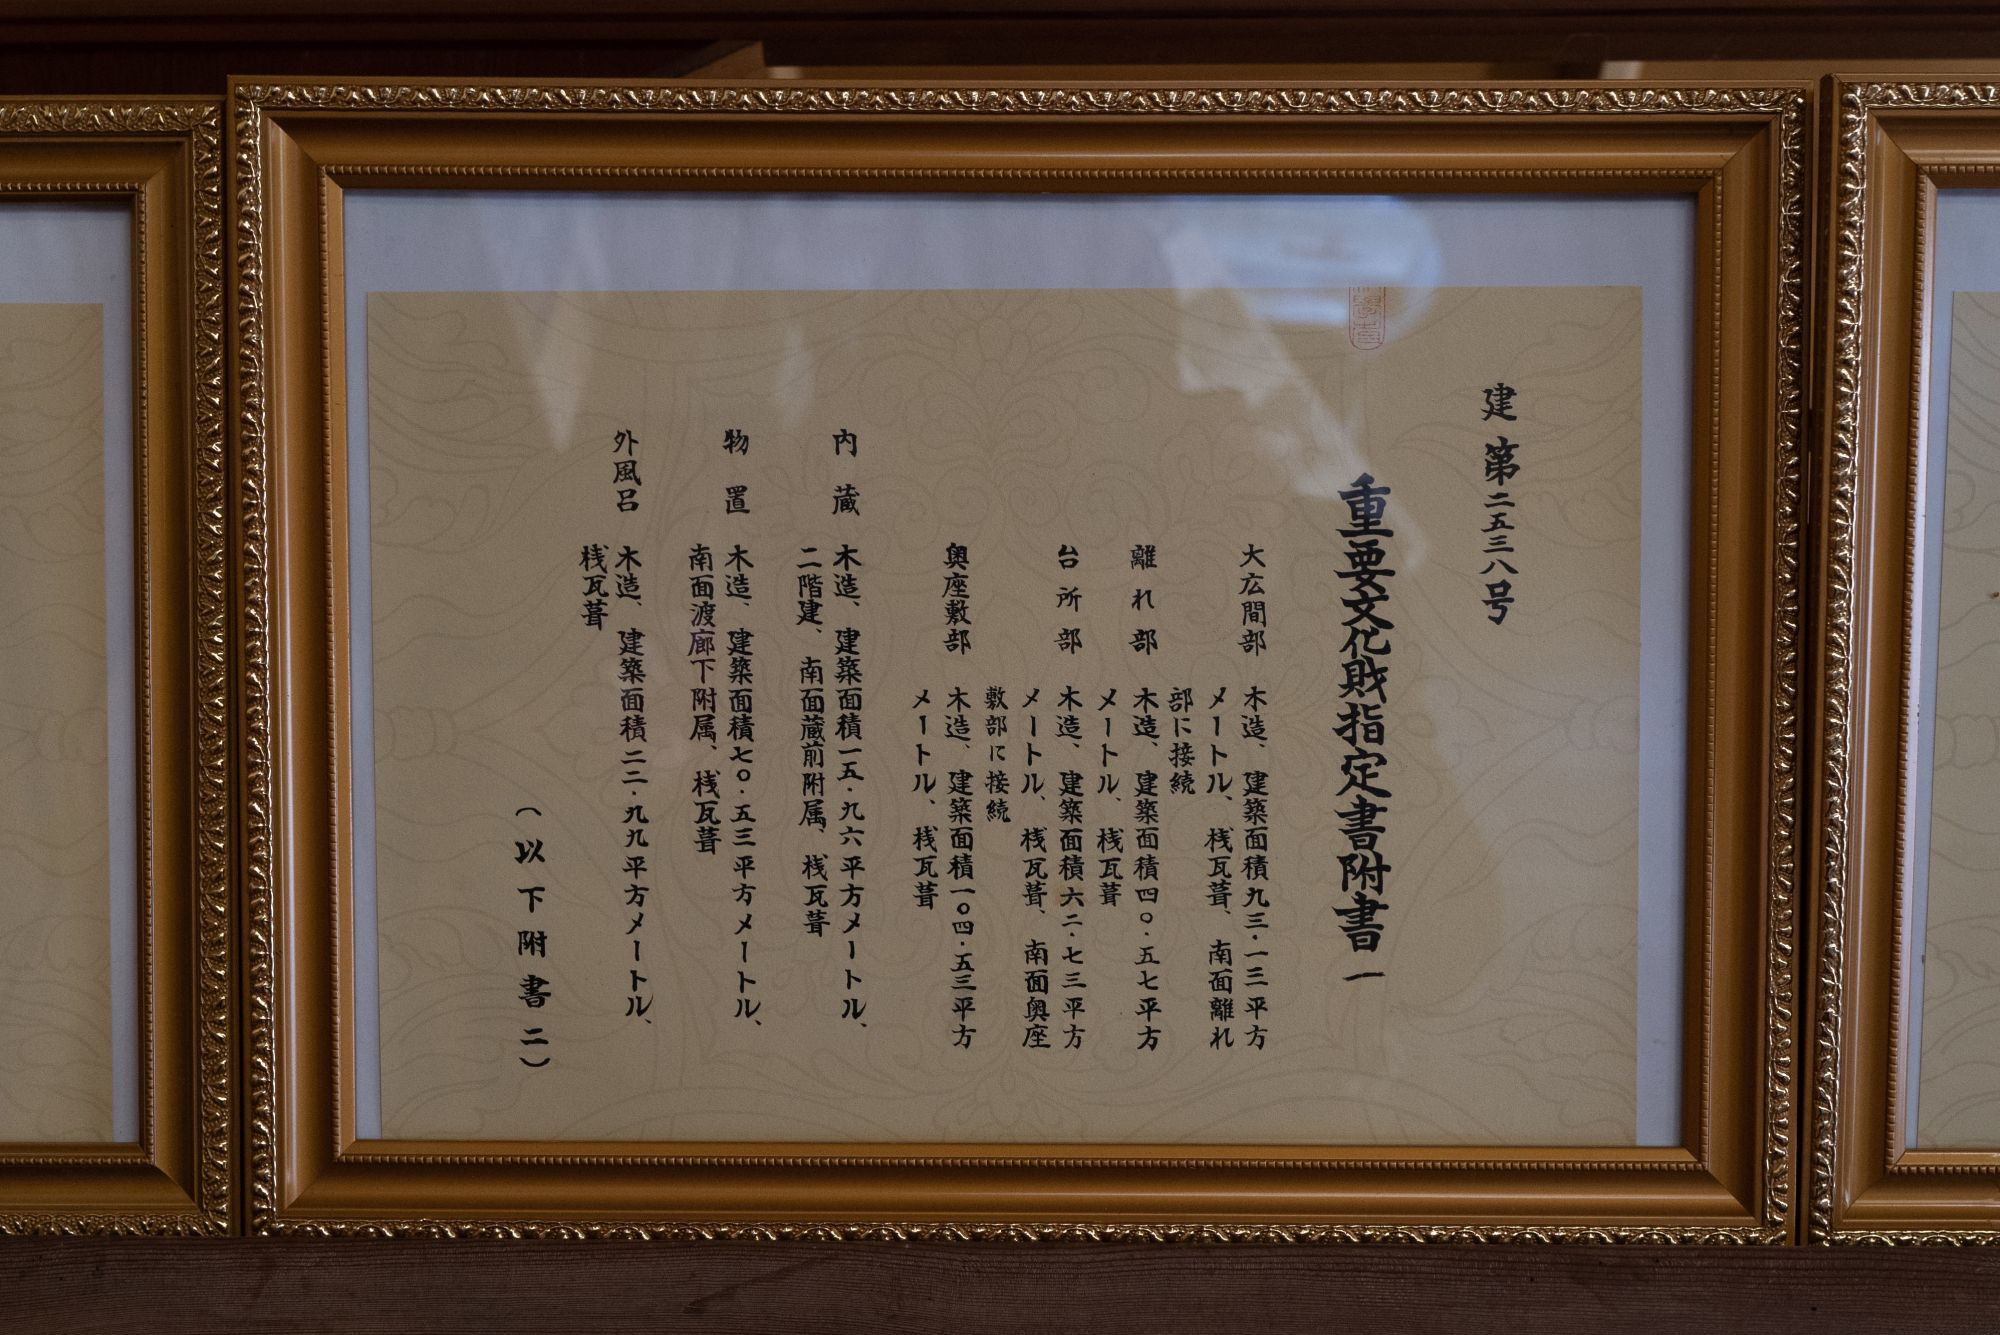 建第二五三八号
重要文化財指定書附書一
大広間部 木造、建築面積九三・一三平方
メートル、桟瓦葺、南面離れ
部に接続
離れ部 木造、建築面積四〇・五七平方
メートル、桟瓦葺
台所部 木造、建築面積六二・七三平方
メートル、桟瓦葺、南面奥座
敷部に接続
奥座敷部 木造、建築面積一〇四・五三平方
メートル、桟瓦葺
内蔵 木造、建築面積一五・九六平方メートル、
二階建、南面蔵前附属、桟瓦葺
物置 木造、建築面積七〇・五三平方メートル、
南面渡廊下附属、桟瓦葺
外風呂 木造、建築面積二二・九九平方メートル、
桟瓦葺
（以下附書二）